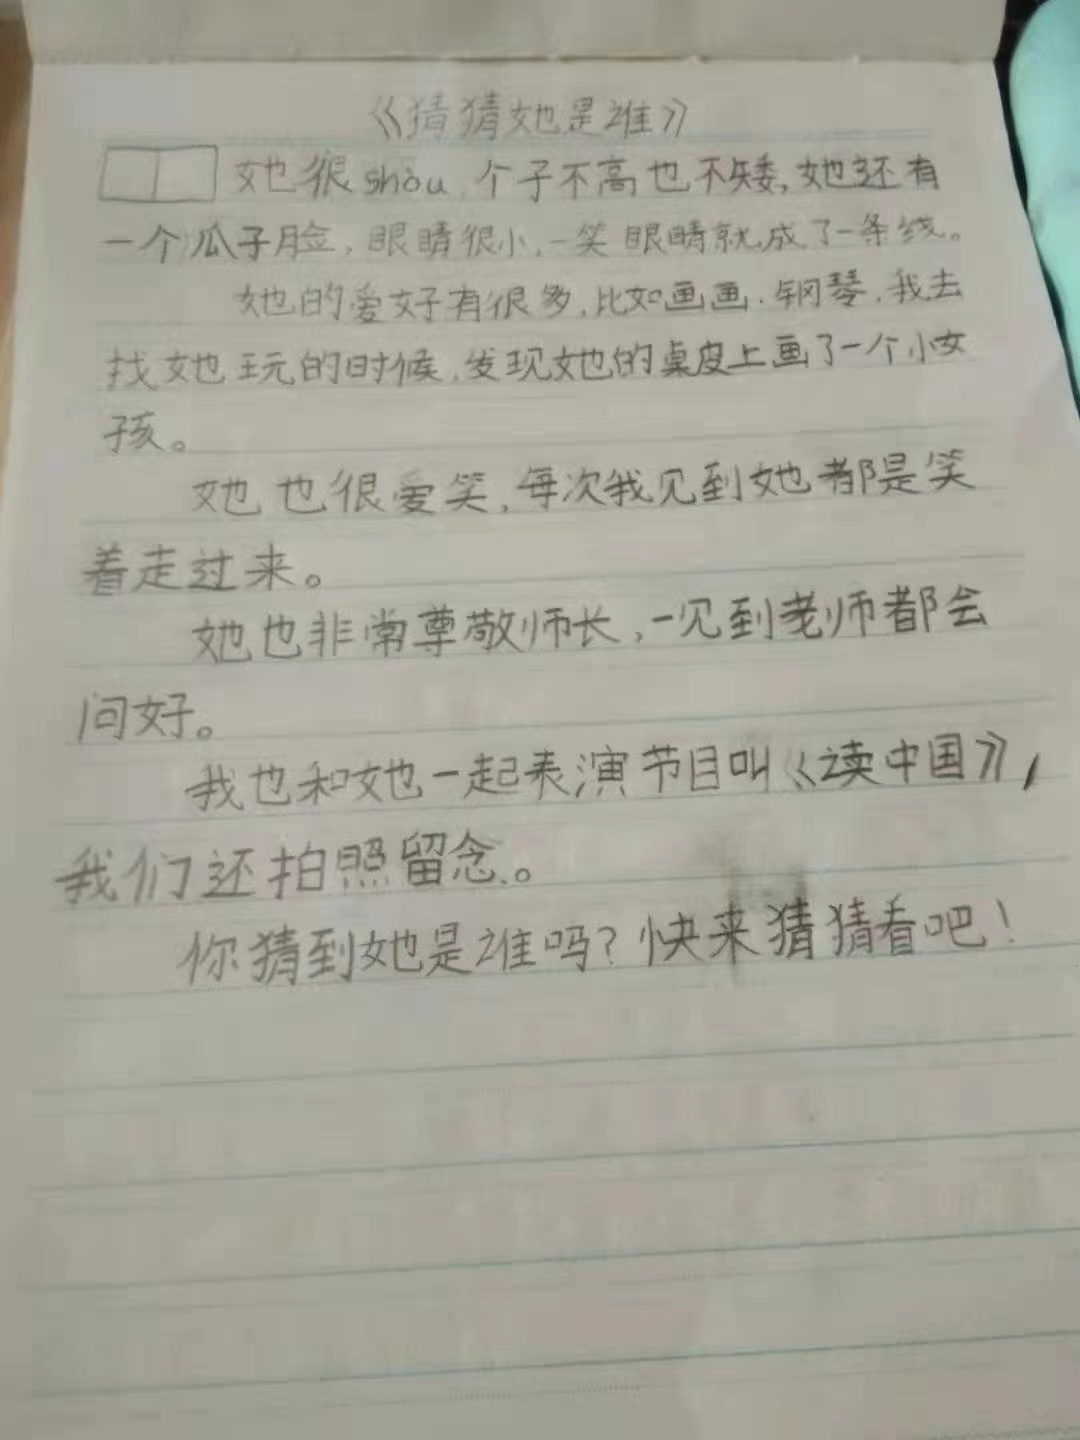 《猜猜她是谁》
她很shòu,个子不高也不矮,她还有
一个瓜子脸,眼睛很小,一笑眼睛就成了一条线。
她的爱好有很多,比如画画.钢琴,我去
找她玩的时候,发现她的桌皮上画了一个小女
孩。
她也很爱笑,每次我见到她都是笑
着走过来。
她也非常尊敬师长,一见到老师都会
问好。
我也和她一起表演节目叫《读中国》,
我们还拍照留念。
你猜到她是谁吗?快来猜猜看吧!